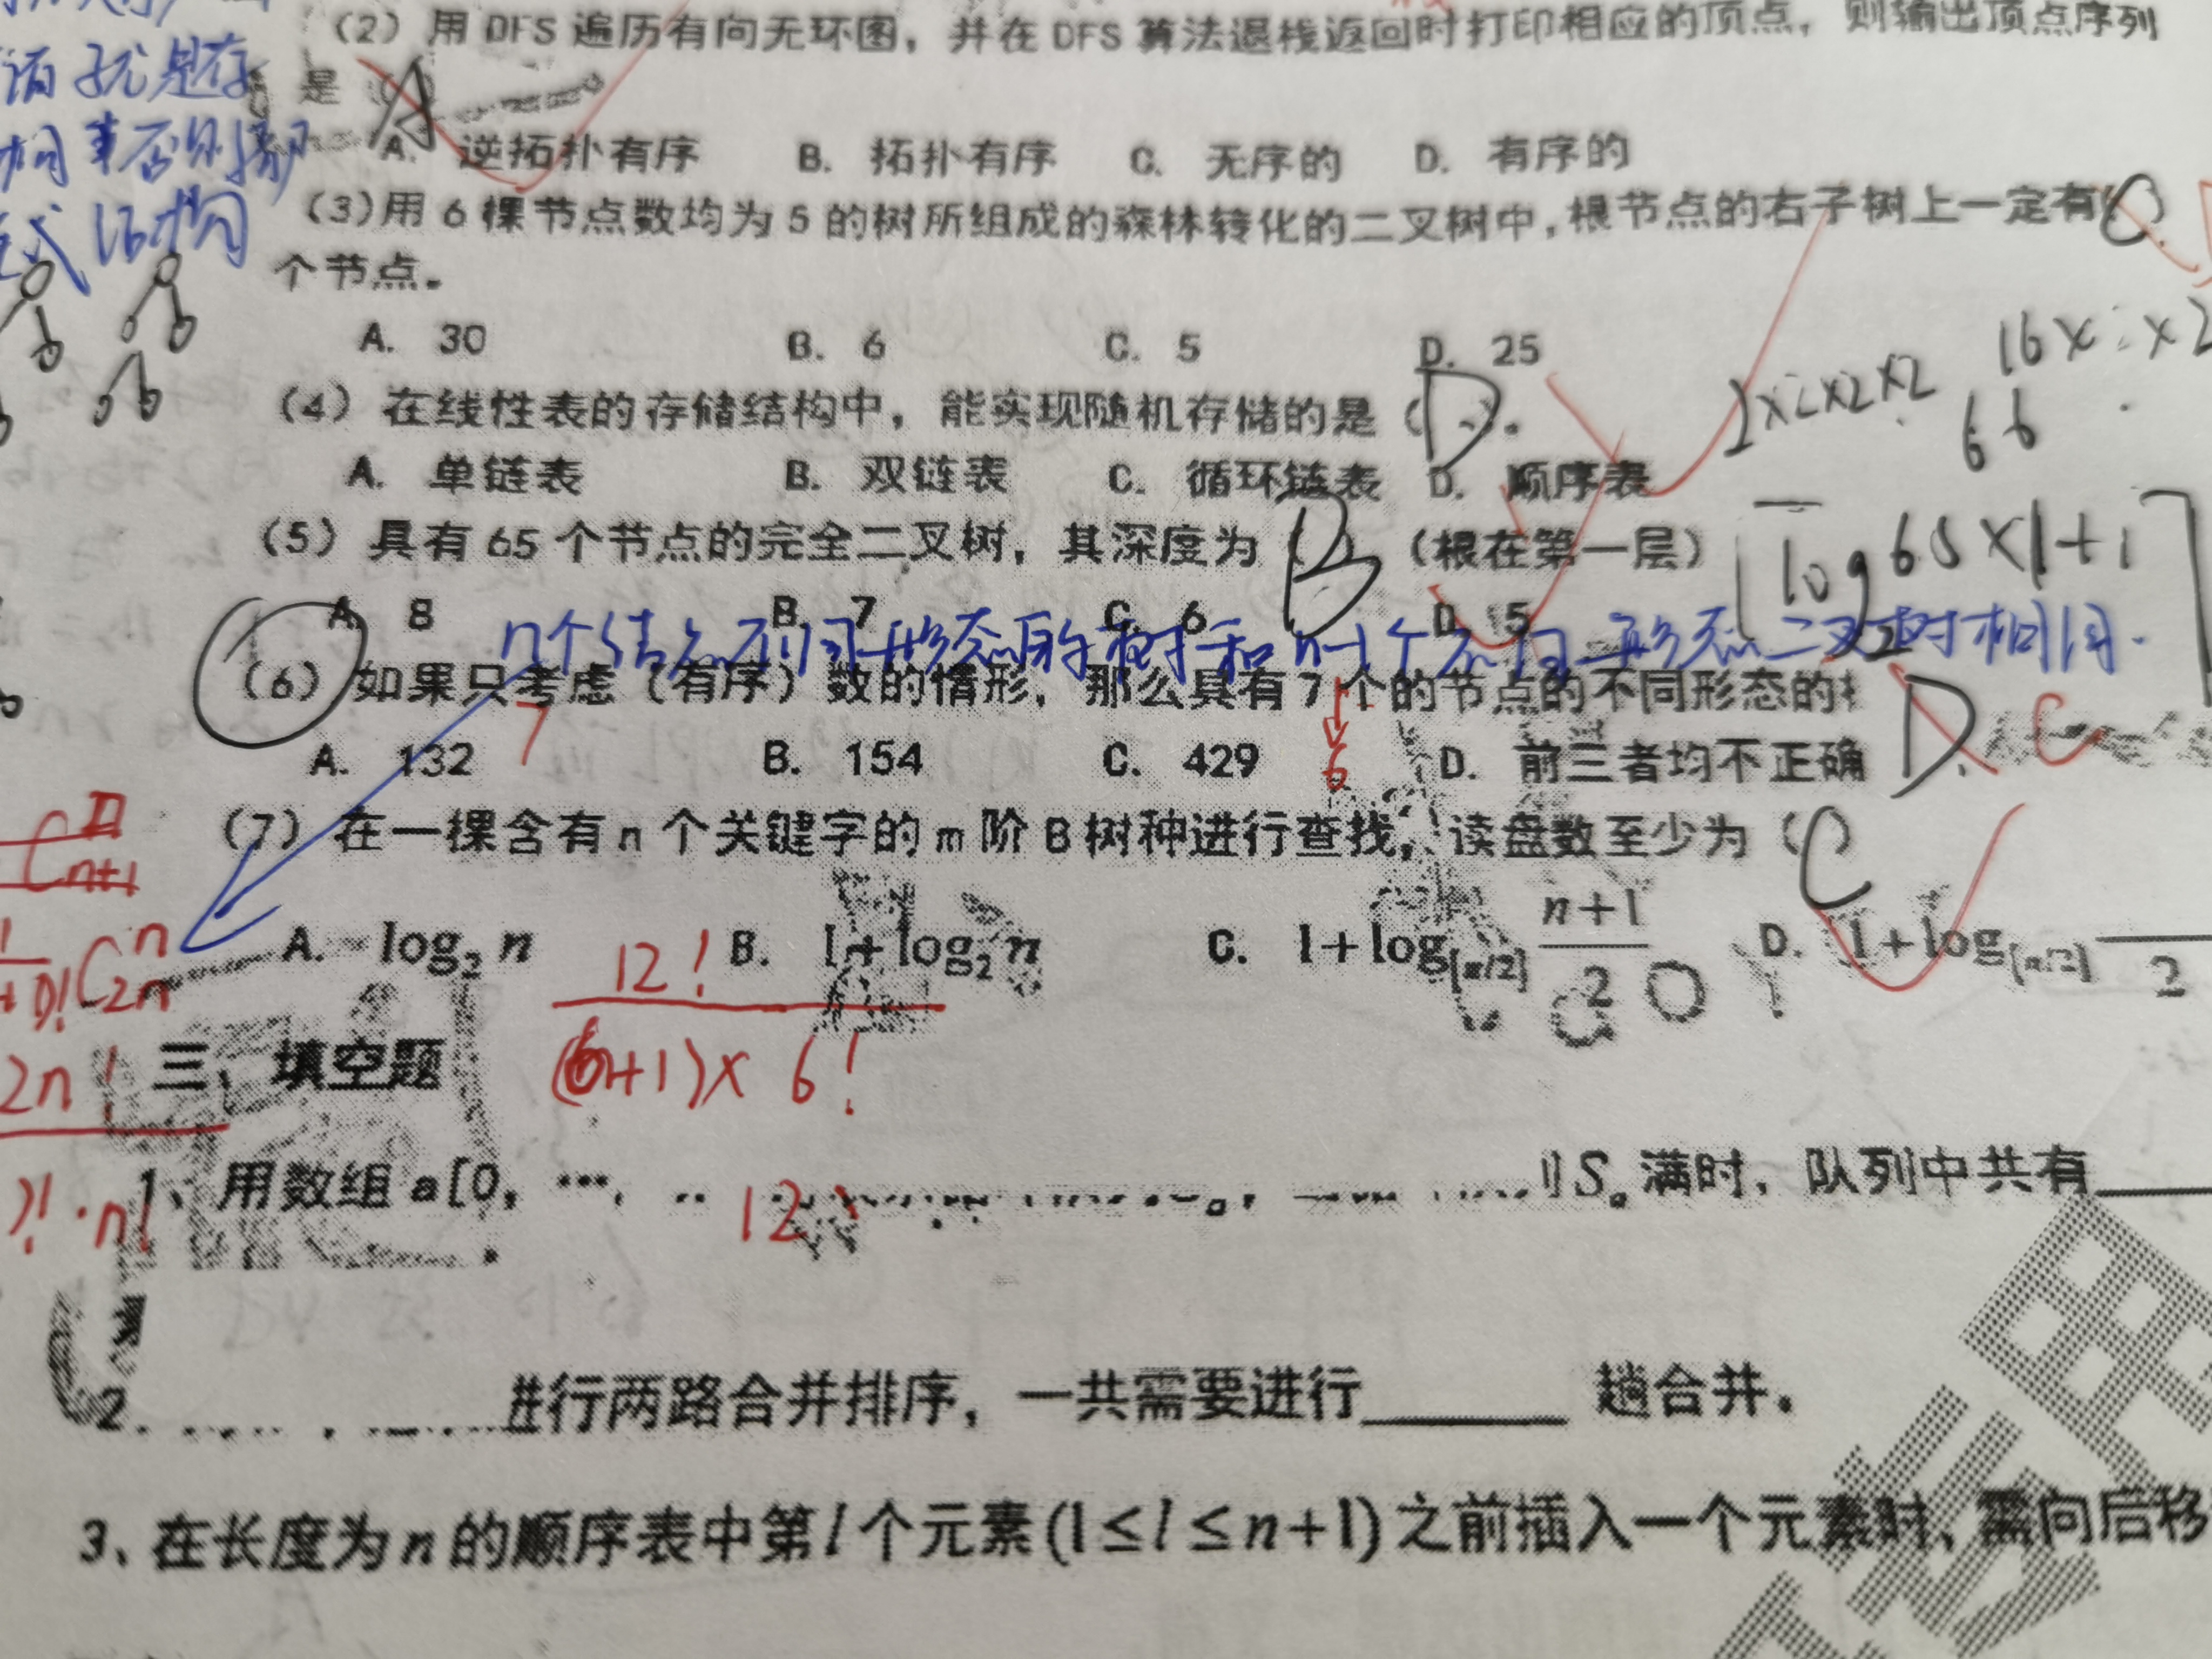 (2) 用 DFS 遍历有向无环图，并在 DFS 算法退栈返回时打印相应的顶点，则输出顶点序列
是 ( A
A. 逆拓扑有序 B. 拓扑有序 C. 无序的 D. 有序的
(3)用 6 棵节点数均为 5 的树所组成的森林转化的二叉树中,根节点的右子树上一定有(
个节点。
A. 30 B. 6 C. 5 D. 25
2×2×2×2
66
(4) 在线性表的存储结构中，能实现随机存储的是 ( D )。
A. 单链表 B. 双链表 C. 循环链表 D. 顺序表
(5) 具有 65 个节点的完全二叉树，其深度为 ( B (根在第一层)
A. 8 B. 7 C. 6 D. 5
n个结点不同形态的树和n-1个不同形态二叉树相同.
(6) 如果只考虑 (有序) 数的情形，那么具有 7 个的节点的不同形态的 D. C
7
6
A. 132 B. 154 C. 429 D. 前三者均不正确
(7) 在一棵含有 n 个关键字的 m 阶 B 树种进行查找，读盘数至少为 ( C )
A. log₂ n B. 1+log₂ n C. 1+log[m/2] (n+1)/2 D. 1+log[m/2] 2
12!
6!
三、填空题
2n!
1、用数组 a[0, …, S。满时，队列中共有
12
2. 进行两路合并排序，一共需要进行______ 趟合并。
3、在长度为 n 的顺序表中第 l 个元素(1≤l≤n+1)之前插入一个元素时、需向后移